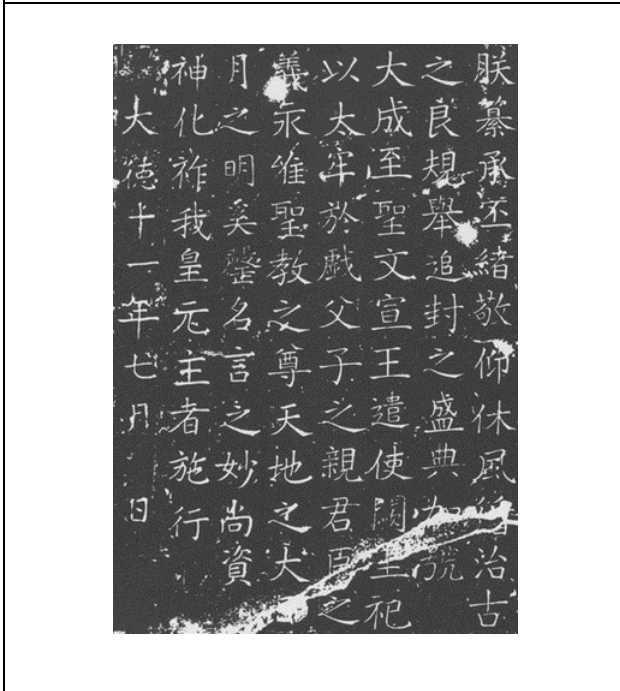 朕纂承丕緒敬仰休風循治古
之良規舉追封之盛典加號
大成至聖文宣王遣使闕里祀
以太牢於戲父子之親君臣之
義永惟聖教之尊天地之大日
月之明奚罄名言之妙尚資
神化祚我皇元主者施行
大徳十一年七月 日